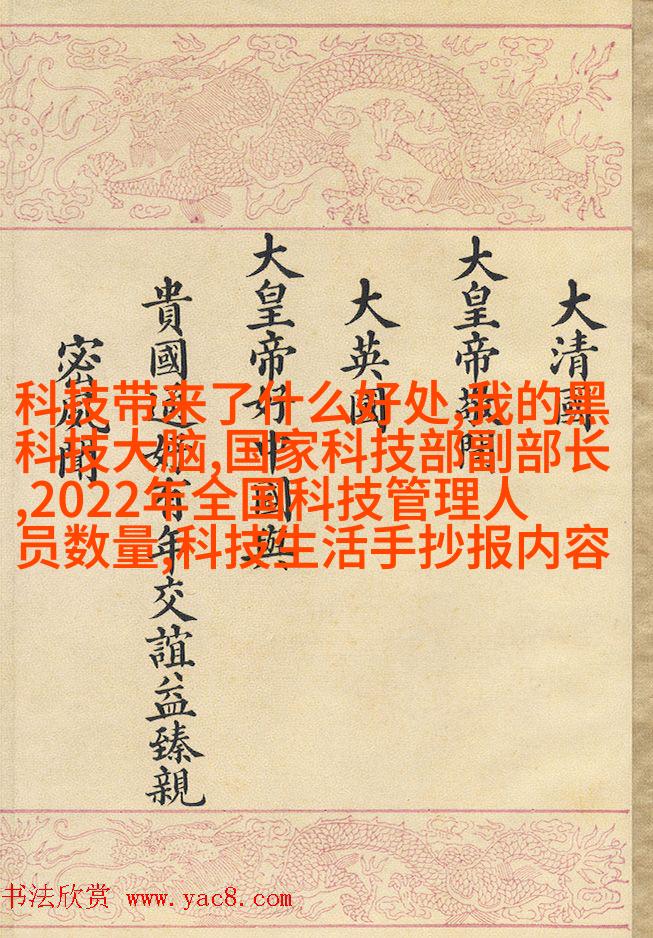 大清國
大皇帝敬問
大英國
大皇帝好中國與
貴國通好有年交誼益臻親
密聞
科技带来了什么好处,我的黑
科技大脑,国家科技部副部长
,2022年全国科技管理人
员数量,科技生活手抄报内容
书法欣赏 www.yac8.com